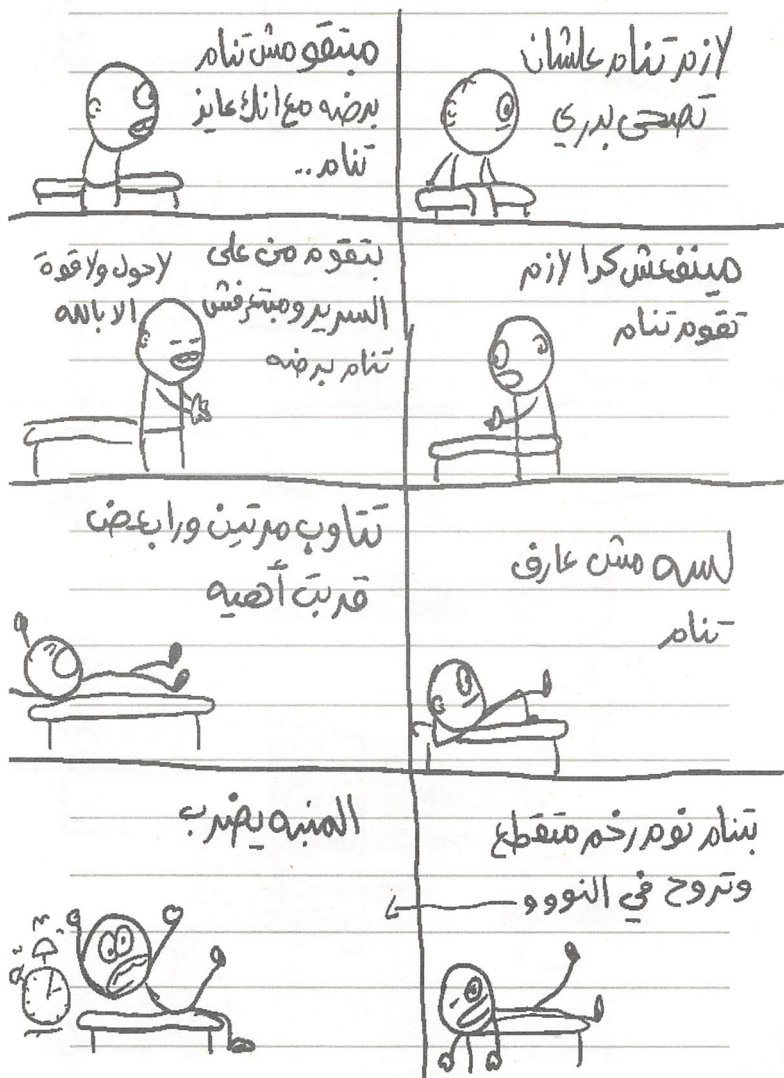 لازم تنام علشان
تصحى بدري
مبتقومش تنام
برضه مع انك عايز
تنام..
مينفعش كدا لازم
تقوم تنام
بتقوم من على
السرير ومبتعرفش
تنام برضه
لاحول ولا قوة
الا بالله
لسه مش عارف
تنام
تتاوب مرتين ورا بعض
قربت أهيه
بتنام نوم رخم متقطع
وتروح في النووو
المنبه يضرب